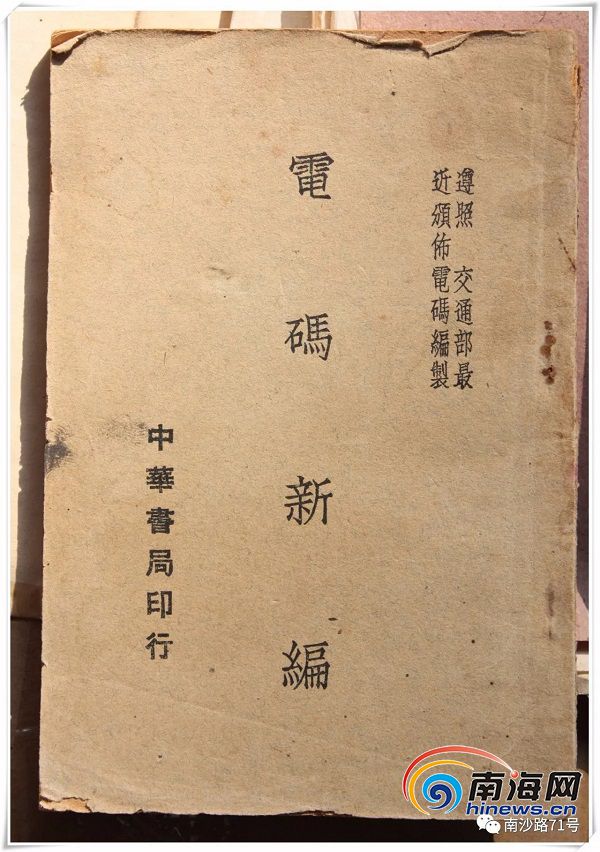 遵照 交通部最
近頒佈電碼編製
電碼新編
中華書局印行
南海网
hinews.cn
南沙路71号